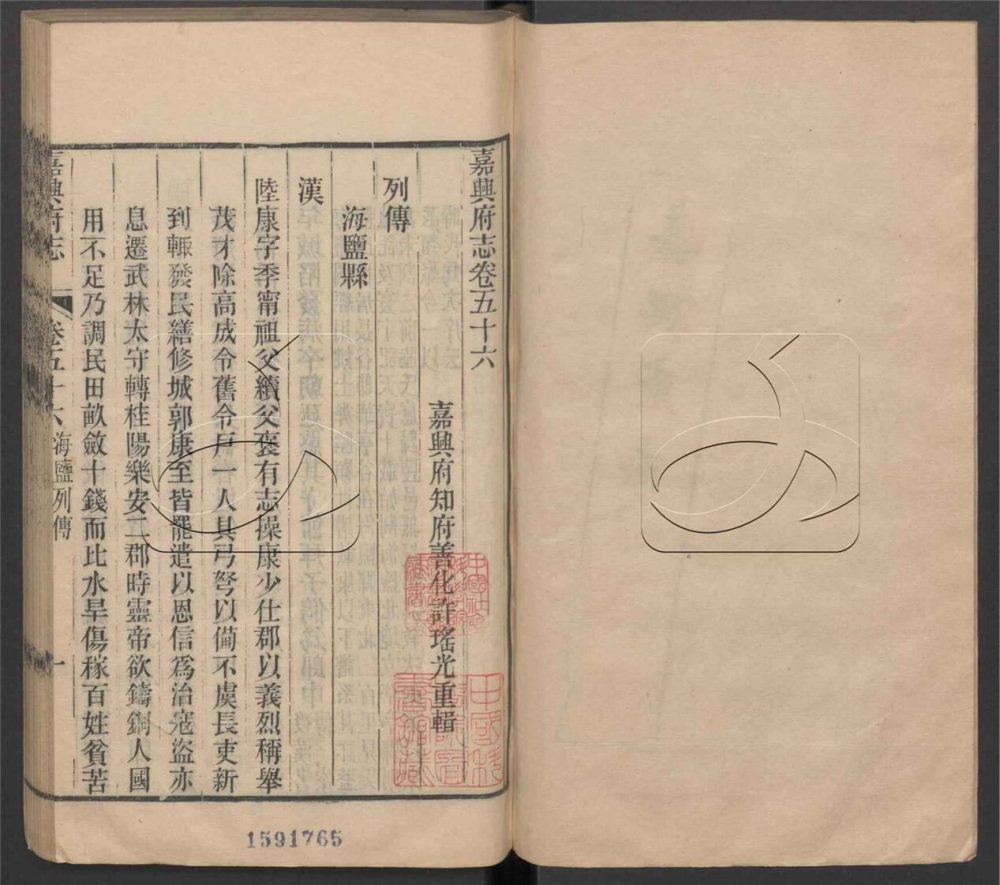 嘉興府志卷五十六
嘉興府知府善化許瑤光重輯
列傳
海鹽縣
漢
陸康字季甯祖父續父褒有志操康少仕郡以義烈稱舉
茂才除高成令舊令戶一人具弓弩以備不虞長吏新
到輒發民繕修城郭康至皆罷遣以恩信爲治寇盜亦
息遷武林太守轉桂陽樂安二郡時靈帝欲鑄銅人國
用不足乃調民田畝斂十錢而比水旱傷稼百姓貧苦
嘉興府志 卷五十六 海鹽列傳 一
1591765